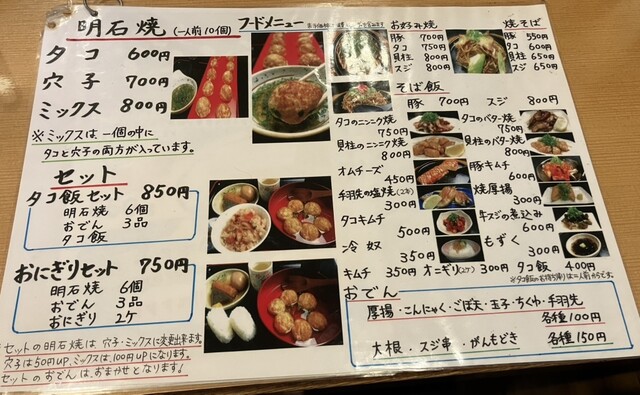 明石焼 (一人前10個)
タコ 600円
穴子 700円
ミックス 800円
※ミックスは一個の中に
タコと穴子の両方が入っています。
セット
タコ飯セット 850円
明石焼 6個
おでん 3品
タコ飯
おにぎりセット 750円
明石焼 6個
おでん 3品
おにぎり 2ケ
セットの明石焼は穴子・ミックスに変更出来ます。
穴子は50円UP、ミックスは、100円UPになります。
セットのおでんは、おまかせとなります!
フードメニュー
お好み焼
豚 700円
タコ 750円
貝柱 800円
スジ 800円
焼そば
豚 550円
タコ 600円
貝柱 650円
スジ 650円
そば飯
豚 700円 スジ 800円
タコのニンニク焼
750円
貝柱のニンニク焼
800円
オムチーズ
450円
手羽先の塩焼(2本)
300円
タコキムチ
500円
冷奴
350円
キムチ 350円
タコのバター焼
750円
貝柱のバター焼
800円
豚キムチ
600円
焼厚揚
300円
牛スジの煮込み
600円
もずく
300円
オニギリ(2ケ) 300円
タコ飯 400円
おでん
厚揚・こんにゃく・ごぼ天・玉子・ちくわ・手羽先
各種100円
大根・スジ串・がんもどき 各種150円